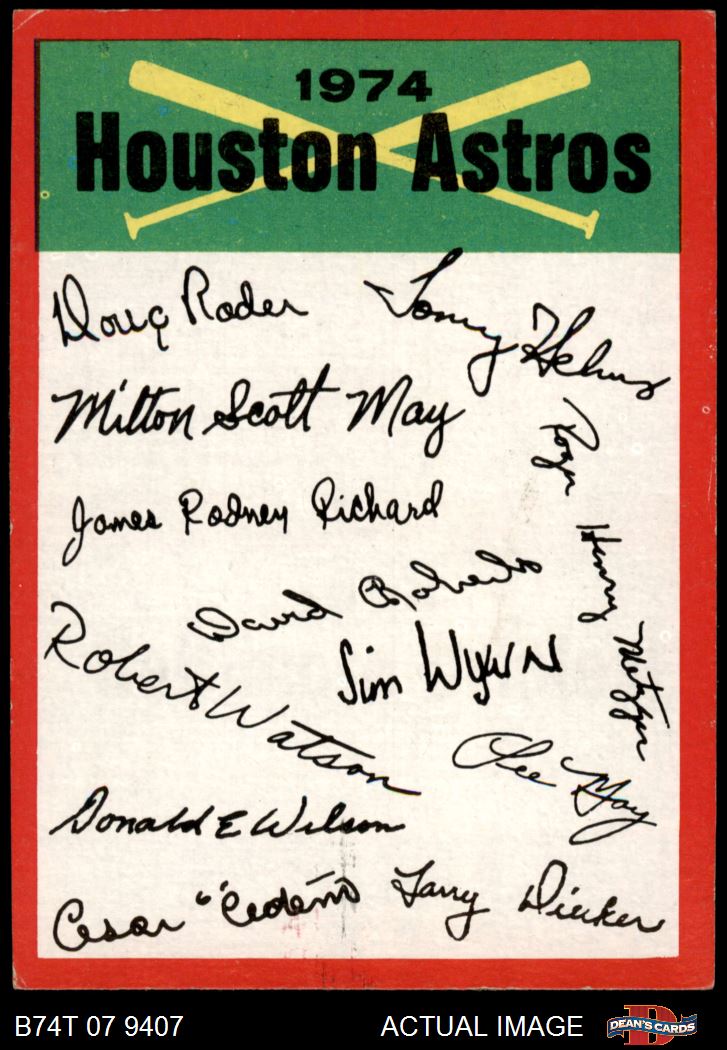 1974
Houston Astros
Doug Rader
Tommy Helms
Milton Scott May
Roger Henry Metzger
James Rodney Richard
David Roberts
Robert Watson
Jim Wynn
Lee May
Donald E Wilson
Cesar "Cedeño
Larry Dierker
B74T 07 9407
ACTUAL IMAGE
D
DEAN'S CARDS